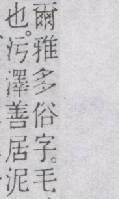 爾雅多俗字。毛
也。污澤善居泥